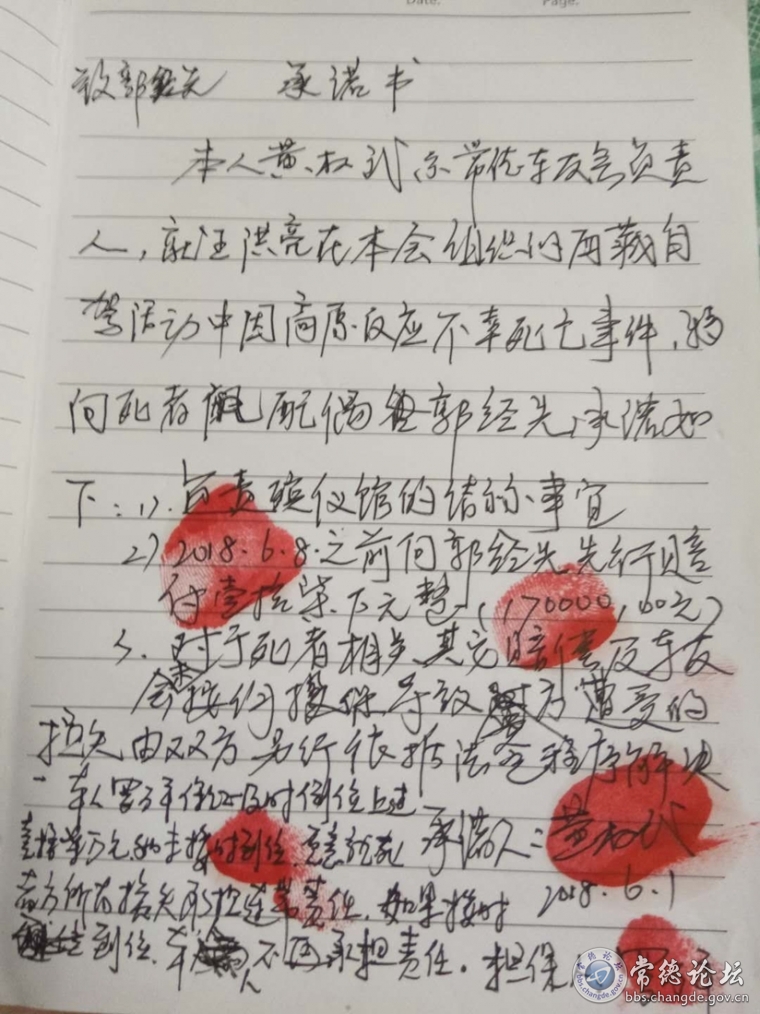 Date.
Page.
致郭经先 承诺书
本人黄权武系常德车友会负责
人,就汪洪亮在本会组织的西藏自
驾活动中因高原反应不幸死亡事件,特
向死者配偶郭经先承诺如
下:1).负责殡仪馆的结算事宜
2)2018.6.8.之前向郭经先先行赔
付壹拾柒万元整(170000.00元)
3、对于死者相关其它赔偿及车友
会未按约操作导致对方遭受的
损失由双方另行依据法定程序解决
本人 保证及时到位上述
壹拾柒万元,如未按时到位,愿意就死
者方所有损失承担连带责任.如果按时
到位,本人不再承担责任.担保
承诺人:黄权武
2018.6.1
常德论坛
bbs.changde.gov.cn